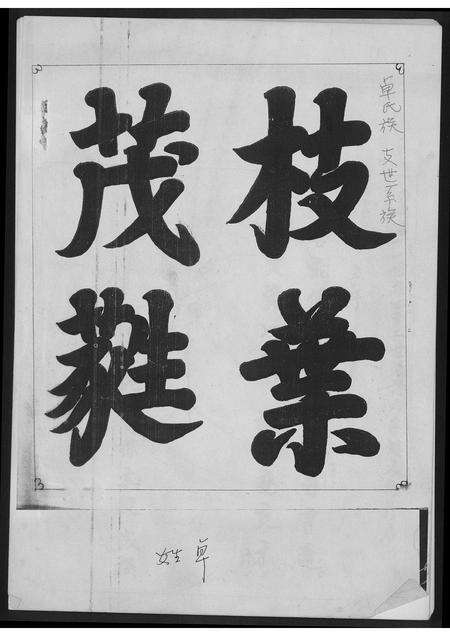 枝葉
茂蕤
卓氏族 支世系族
姓卓